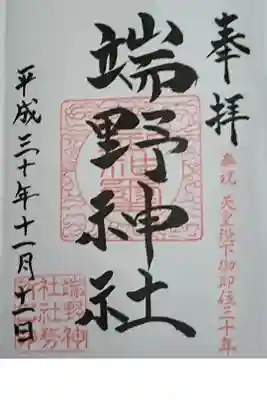 奉拝
奉祝 天皇陛下御即位三十年
端野神社
平成三十年十一月十一日
端野神
社社務
所之印